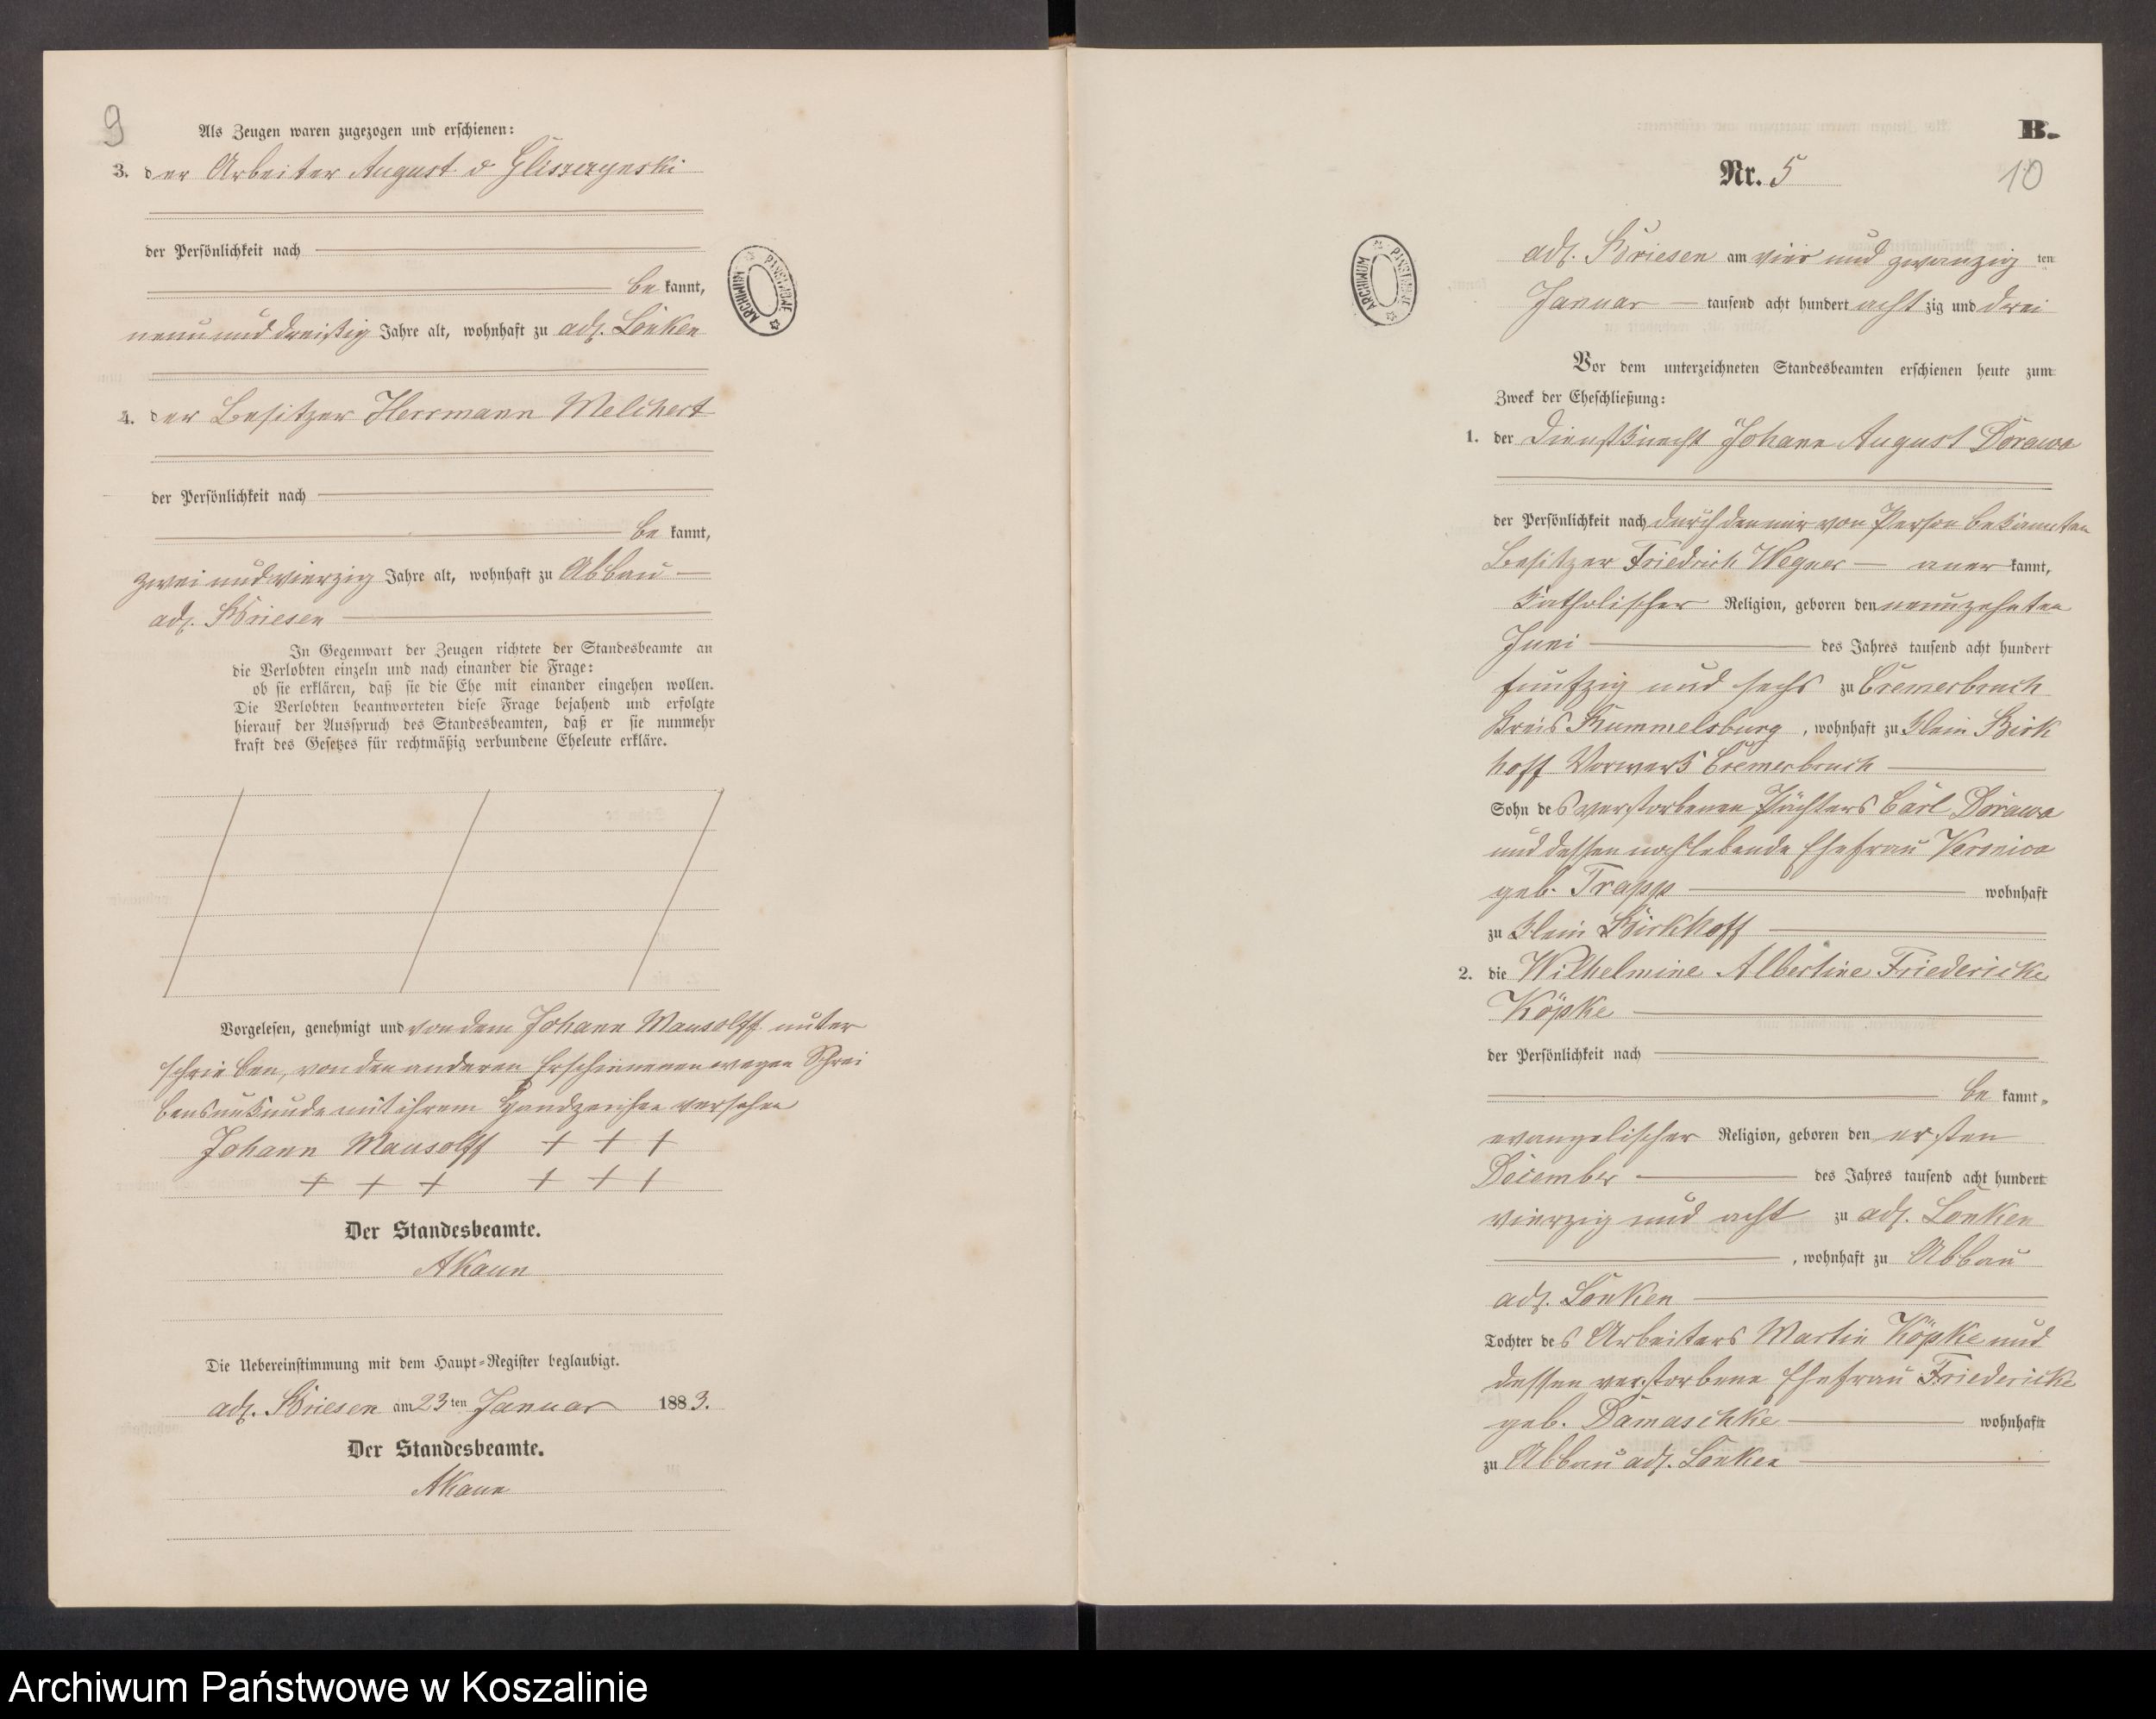 9
Als Zeugen waren zugezogen und erschienen:
3. der Arbeiter August v Gliszczynski
der Persönlichkeit nach
be kannt,
neun und dreißig Jahre alt, wohnhaft zu adl. Lonken
4. der Besitzer Herrmann Melchert
der Persönlichkeit nach
be kannt,
zwei und vierzig Jahre alt, wohnhaft zu Abbau
adl. Briesen
In Gegenwart der Zeugen richtete der Standesbeamte an
die Verlobten einzeln und nach einander die Frage:
ob sie erklären, daß sie die Ehe mit einander eingehen wollen.
Die Verlobten beantworteten diese Frage bejahend und erfolgte
hierauf der Ausspruch des Standesbeamten, daß er sie nunmehr
kraft des Gesetzes für rechtmäßig verbundene Eheleute erkläre.
Vorgelesen, genehmigt und von dem Johann Mausolff unter
schrieben, von den anderen Erschienenen wegen Schrei
bensunkunde mit ihrem Handzeichen versehen
Johann Mausolff + + +
+ + + + + +
Der Standesbeamte.
AKaun
Die Uebereinstimmung mit dem Haupt-Register beglaubigt.
adl. Briesen am 23 ten Januar 1883.
Der Standesbeamte.
AKaun
ARCHIWUM PAŃSTWOWE
B.
Nr. 5
10
ARCHIWUM PAŃSTWOWE
adl. Briesen am vier und zwanzig ten
Januar tausend acht hundert acht zig und drei
Vor dem unterzeichneten Standesbeamten erschienen heute zum
Zweck der Eheschließung:
1. der Dienstknecht Johann August Dorawa
der Persönlichkeit nach durch den mir von Person bekannten
Besitzer Friedrich Wegner aner kannt,
katholischer Religion, geboren den neunzehnten
Juni des Jahres tausend acht hundert
fünfzig und sechs zu Cremerbruch
Kreis Rummelsburg, wohnhaft zu Klein Birk
hoff Vorwerk Cremerbruch
Sohn des verstorbenen Pächters Carl Dorawa
und dessen noch lebende Ehefrau Veronica
geb. Trapp wohnhaft
zu Klein Birkhoff
2. die Wilhelmine Albertine Friedericke
Köpke
der Persönlichkeit nach
be kannt,
evangelischer Religion, geboren den ersten
December des Jahres tausend acht hundert
vierzig und acht zu adl. Lonken
, wohnhaft zu Abbau
adl. Lonken
Tochter des Arbeiters Martin Köpke und
dessen verstorbene Ehefrau Friedericke
geb. Damaschke wohnhaft
zu Abbau adl. Lonken
Archiwum Państwowe w Koszalinie